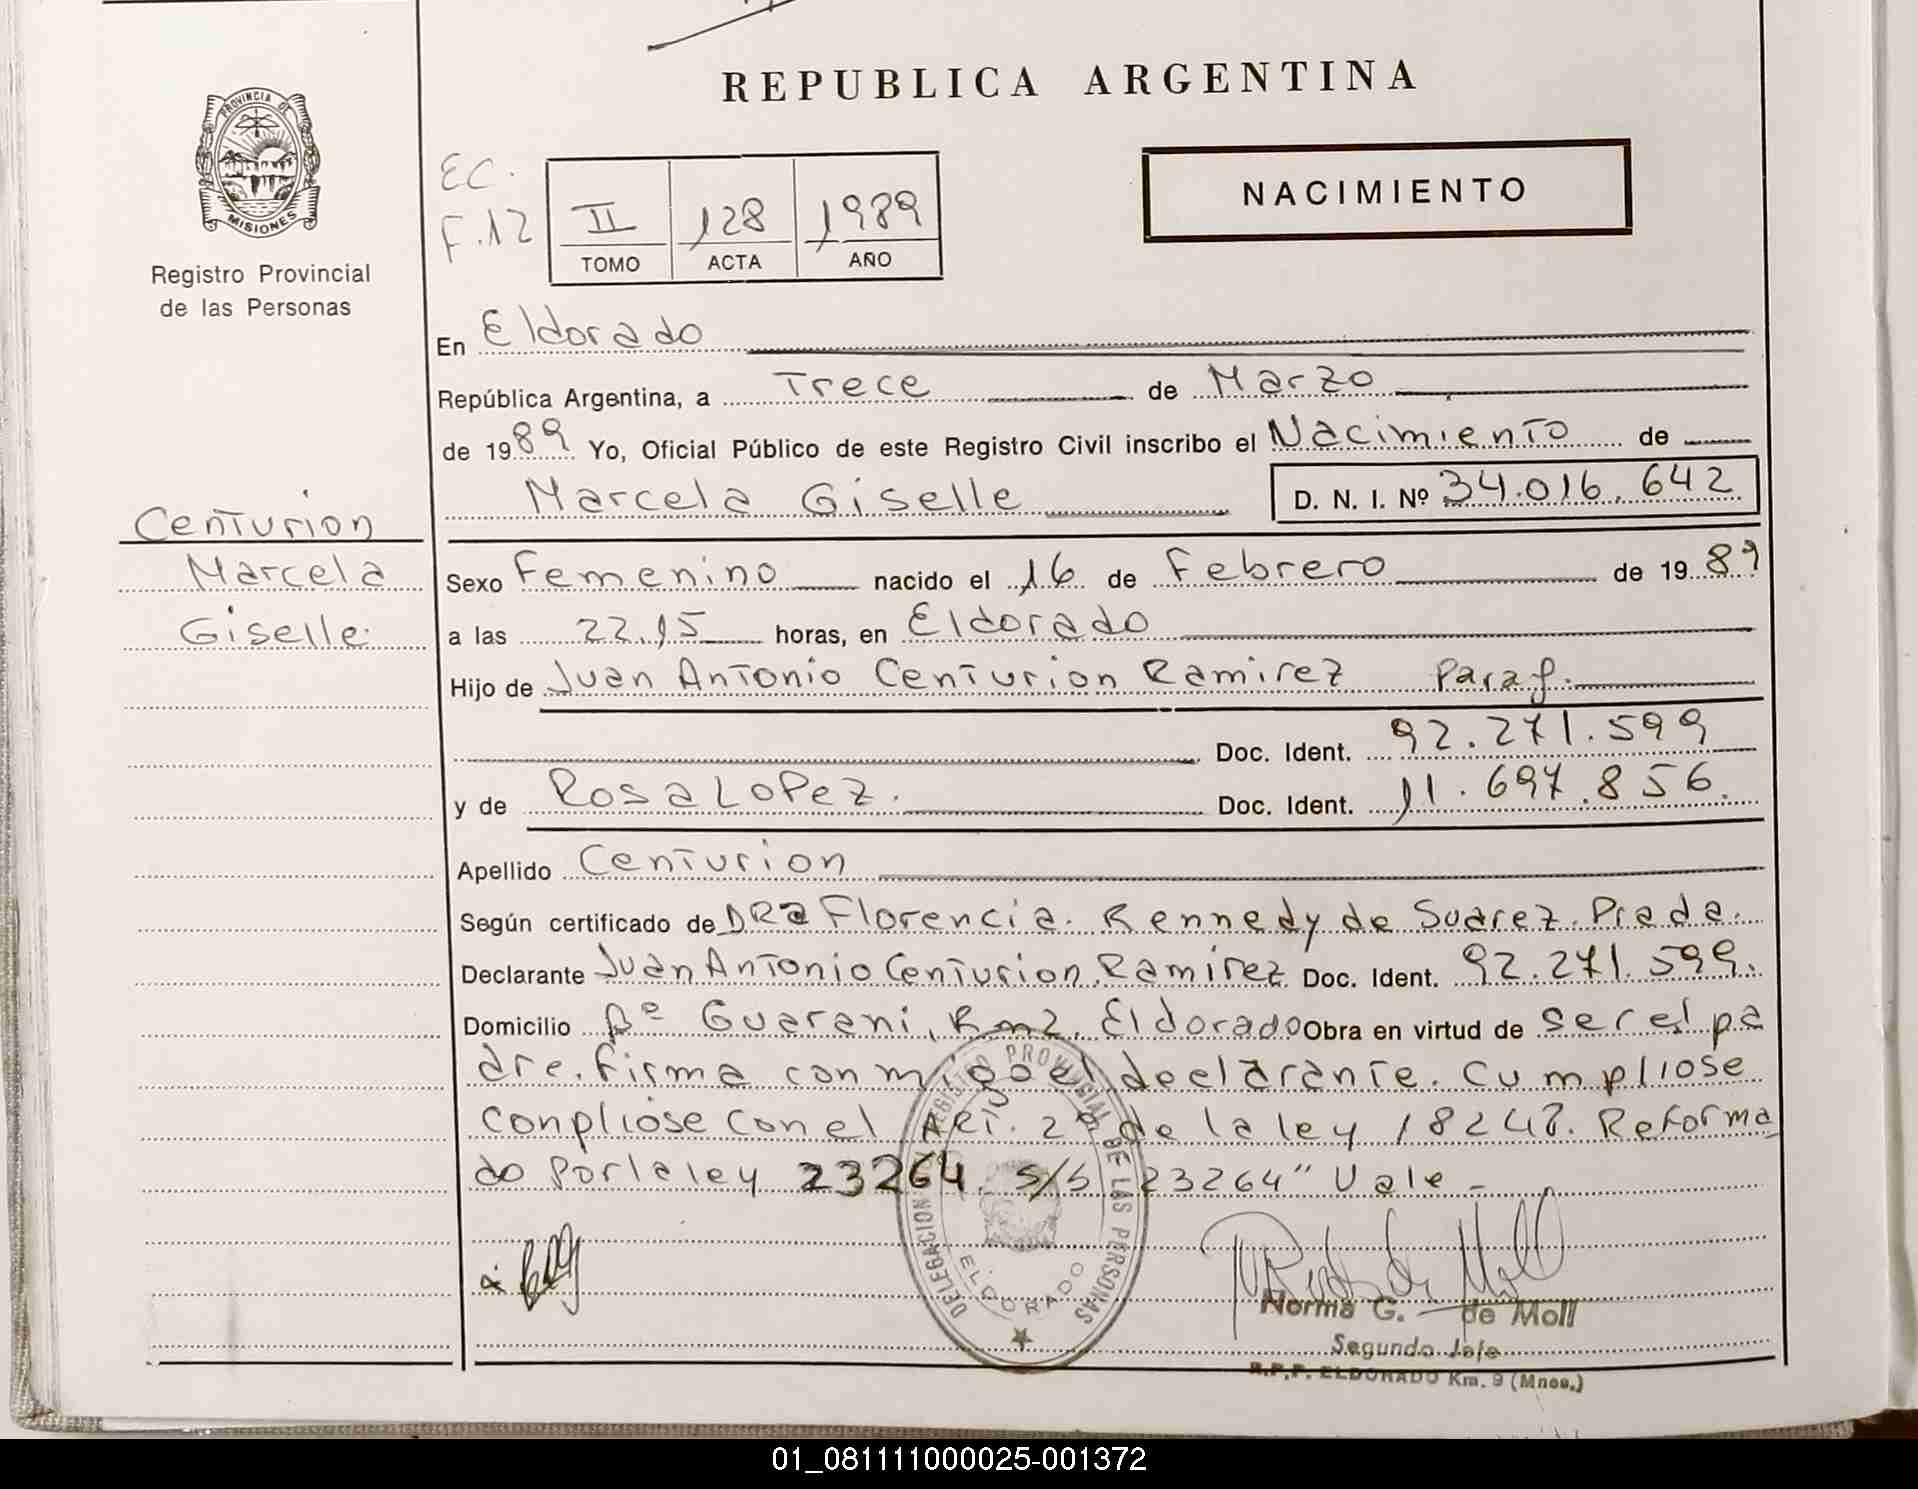 REPUBLICA ARGENTINA
PROVINCIA DE
MISIONES
Registro Provincial
de las Personas
EC.
F.12
II 128 1989
TOMO ACTA AÑO
NACIMIENTO
En Eldorado
República Argentina, a Trece de Marzo
de 1989 Yo, Oficial Público de este Registro Civil inscribo el Nacimiento de
Marcela Giselle D. N. I. Nº 34.016.642
Centurion
Marcela
Giselle
Sexo Femenino nacido el 16 de Febrero de 1989
a las 22.15 horas, en Eldorado
Hijo de Juan Antonio Centurion Ramirez Parag.
Doc. Ident. 92.271.599
y de Rosa Lopez. Doc. Ident. 11.697.856.
Apellido Centurion
Según certificado de DRa Florencia. Kennedy de Suarez. Prada.
Declarante Juan Antonio Centurion Ramirez Doc. Ident. 92.271.599.
Domicilio Bº Guarani, Km2, Eldorado Obra en virtud de ser el pa
dre. Firma conmigo el declarante. Cumpliose
conpliose con el Art. 2º de la ley 18248. Reforma
do Por la ley 23264. s/s "23264" Vale -
DELEGACION REGISTRO PROVINCIAL DE LAS PERSONAS
ELDORADO
Norma G. de Moll
Segundo Jefe
R.P.P. ELDORADO Km. 9 (Mnes.)
01_081111000025-001372